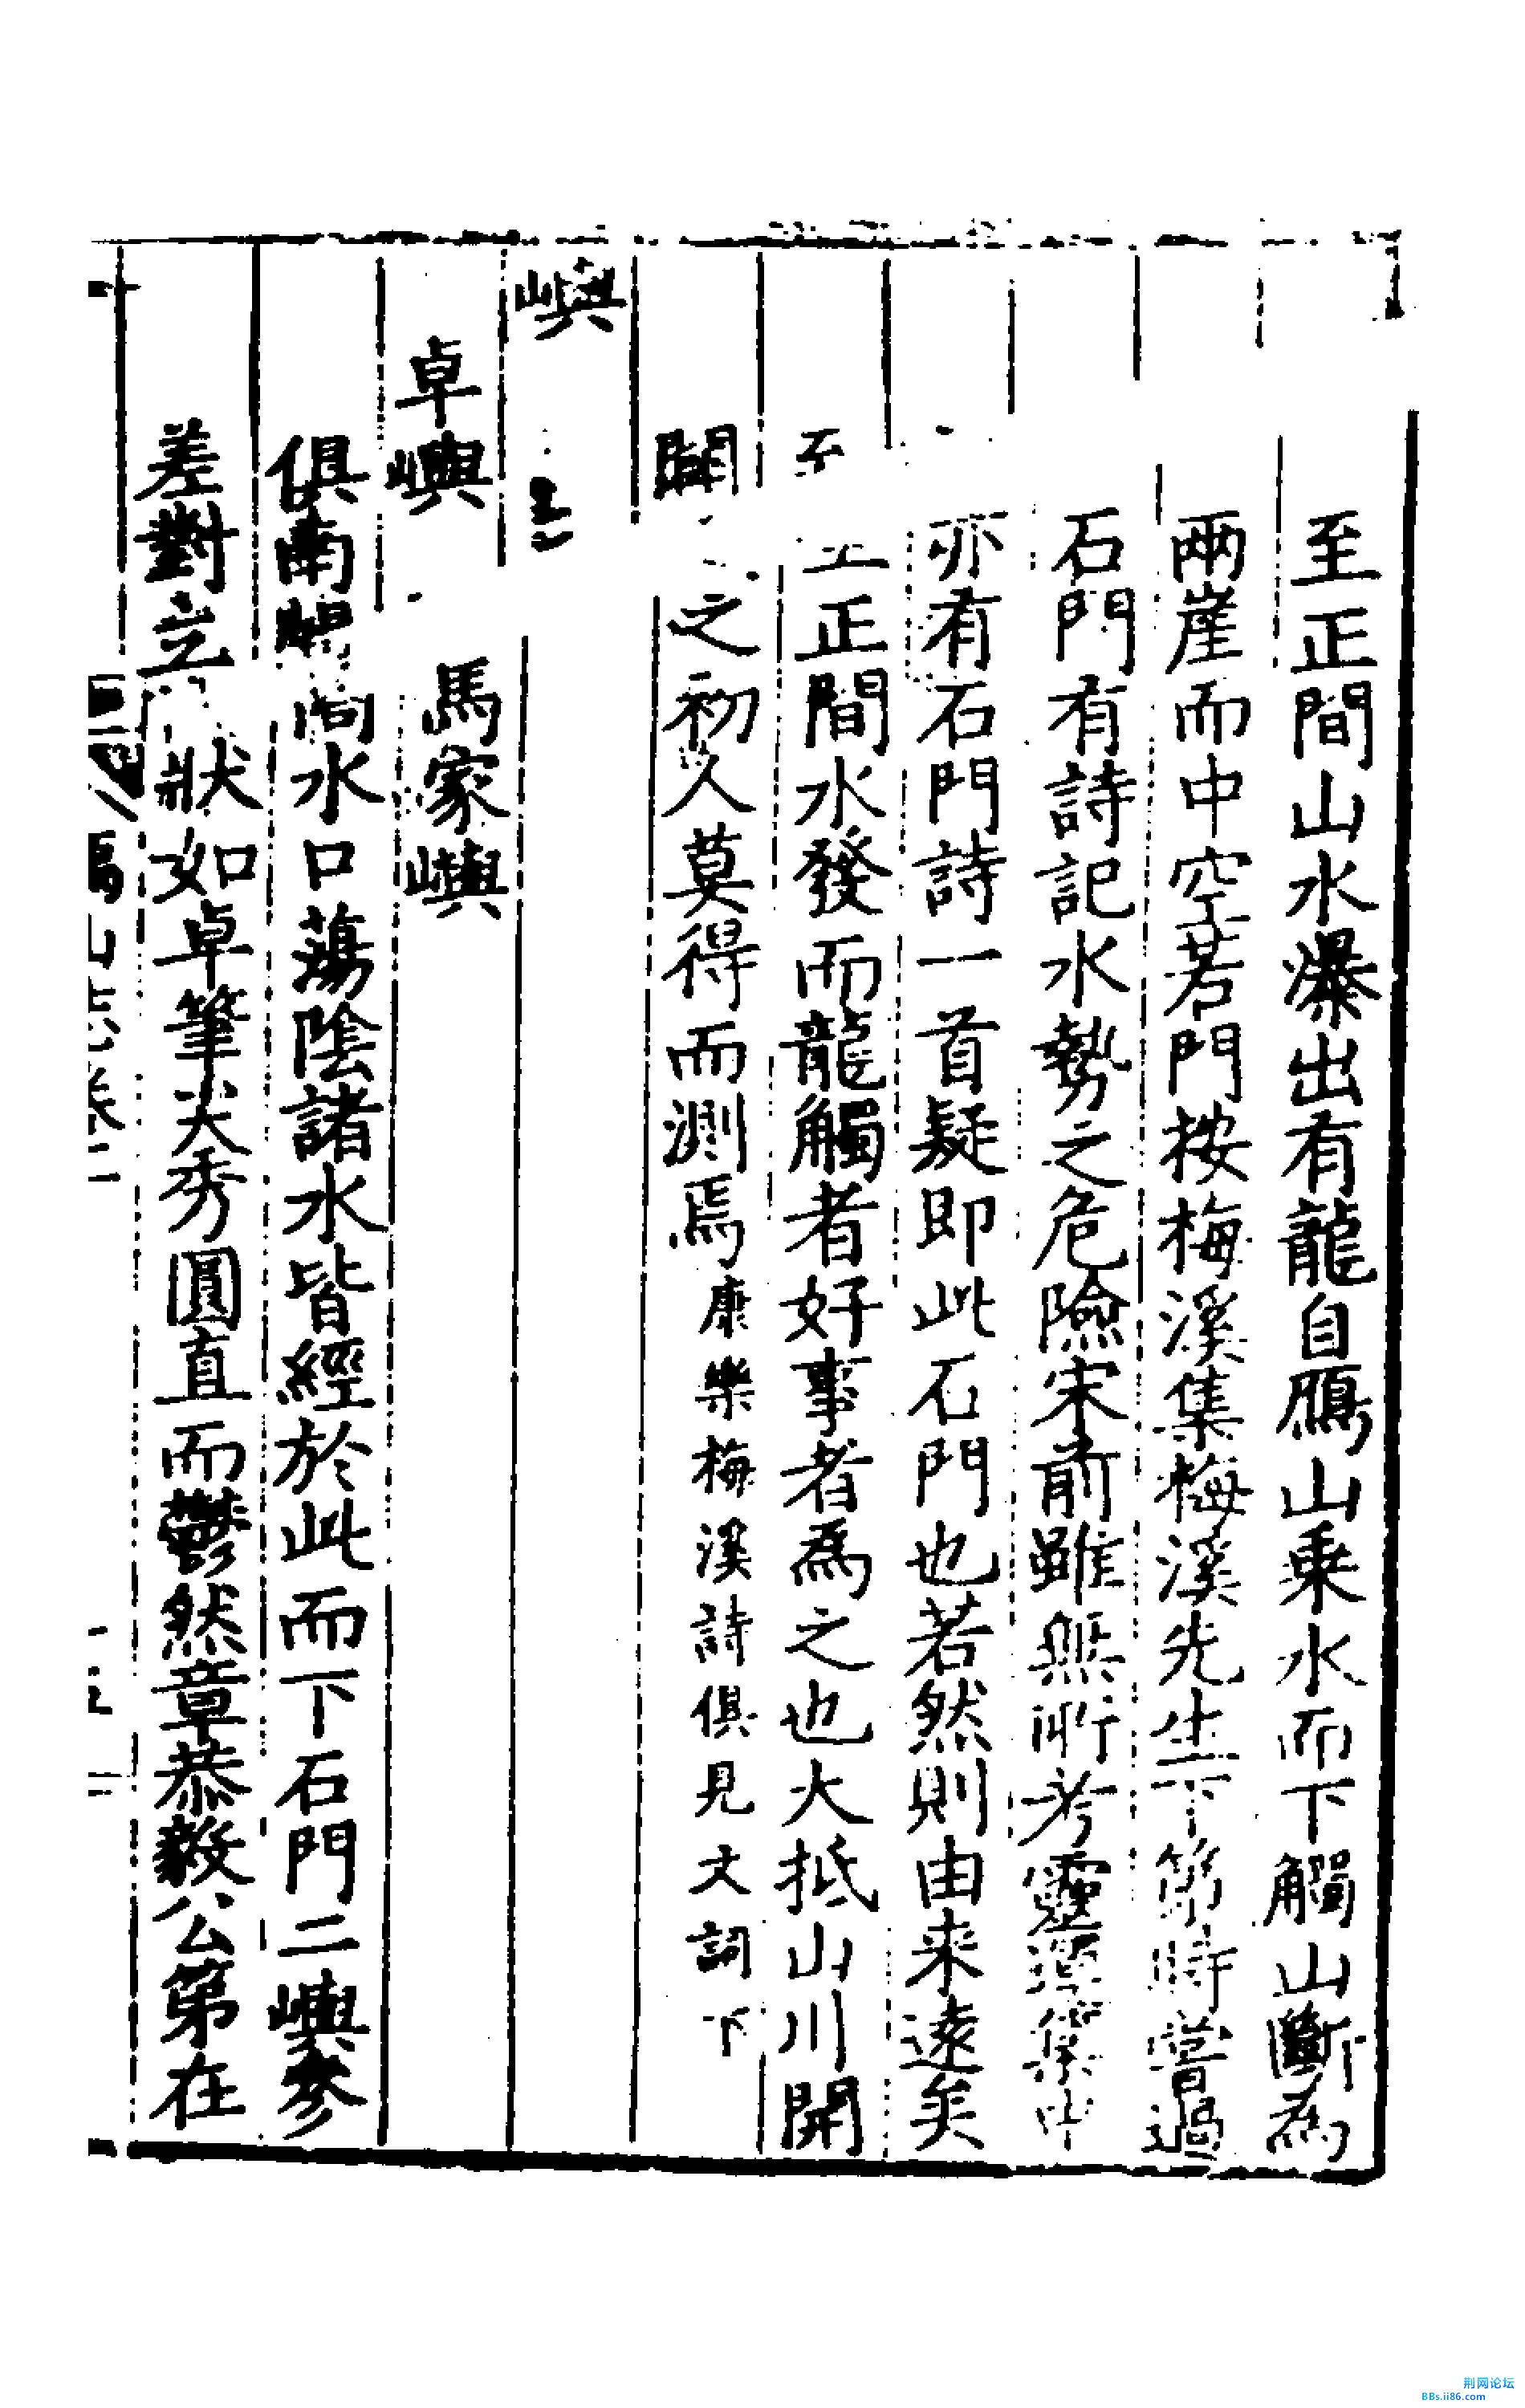 至正間山水瀑出有龍自鴈山乘水而下觸山斷為
兩崖而中空若門按梅溪集梅溪先生下第時嘗過
石門有詩記水勢之危險宋前雖無所考靈運集中
亦有石門詩一首疑即此石門也若然則由来遠矣
至正間水發而龍觸者好事者為之也大抵山川開
闢之初人莫得而測焉康樂梅溪詩俱見文詞下
嶼
卓嶼 馬家嶼
俱南閣 水口蕩陰諸水皆經於此而下石門二嶼參
差對立 狀如卓筆尖秀圓直而鬱然章恭毅公第在
鴈山志卷二
荆网论坛
BBs.ii86.com